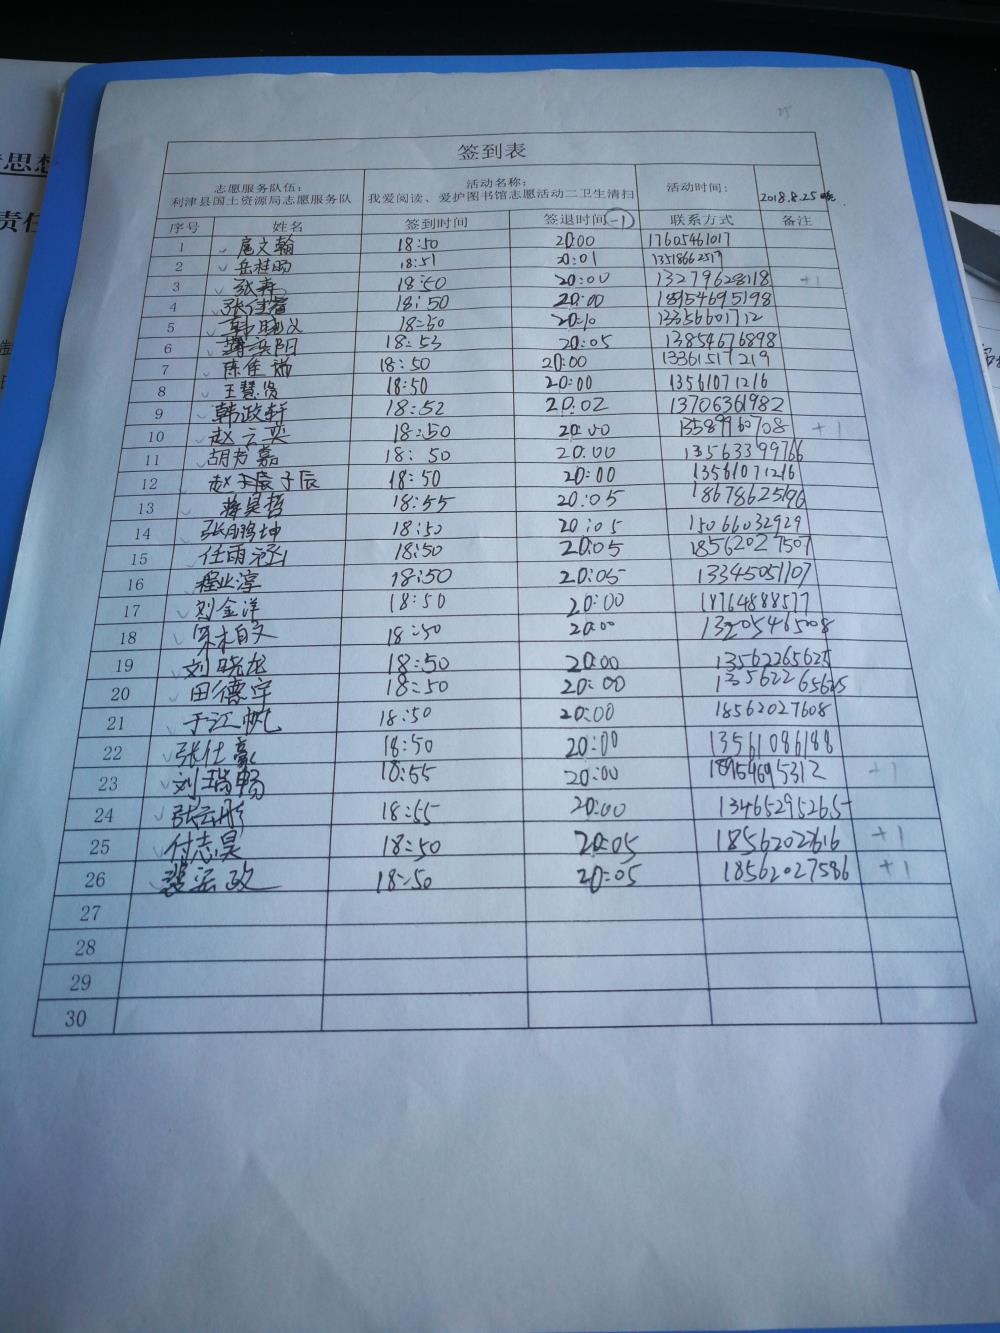 签到表
志愿服务队伍: 活动名称: 活动时间:
利津县国土资源局志愿服务队 我爱阅读、爱护图书馆志愿活动二卫生清扫 2018.8.25晚
序号 姓名 签到时间 签退时间 -1 联系方式 备注
1 扈文翰 18:50 20:00 17605461017
2 岳桂昀 18:51 20:01 13518662517
3 18:50 20:00 13279628118 +1
4 张佳睿 18:50 20:00 18954695198
5 韩晓义 18:50 20:10 13356601712
6 18:53 20:05 13854676898
7 陈佳 18:50 20:00 13361517219
8 王慧 18:50 20:00 13561071216
9 韩政轩 18:52 20:02 13706361982
10 赵云奕 18:50 20:00 13589960708 +1
11 胡芳嘉 18:50 20:00 13563399766
12 赵子辰 18:50 20:00 13561071216
13 蒋昊哲 18:55 20:05 18678625196
14 张鹏坤 18:50 20:05 15066032929
15 任雨涵 18:50 20:05 18562027507
16 程业淳 18:50 20:05 13345051107
17 刘金洋 18:50 20:00 18764888577
18 18:50 20:00 13205465008
19 刘晓龙 18:50 20:00 13562265625
20 田德宇 18:50 20:00
21 于江帆 18:50 20:00 18562027608
22 张仕豪 18:50 20:00 13561086188
23 刘瑞畅 18:55 20:00 18954695312 +1
24 张云彤 18:55 20:00 13465295265
25 付志昊 18:50 20:05 18562027616 +1
26 18:50 20:05 18562027586 +1
27
28
29
30
责任